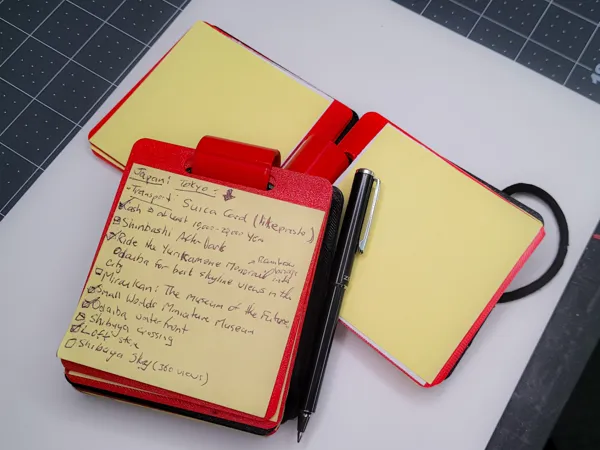 Japan: Tokyo:
Transport: Suica Card (like presto)
Cash is at least 1500-2000 Yen
Shinbashi
Ride the Yurikamome Monorail into
Odaiba for best skyline views in the
city
Rainbow
Miraikan: The Museum of the Future
Small Worlds Miniature Museum
Odaiba waterfront
Shibuya Crossing
Loft
Shibuya Sky (360 views)